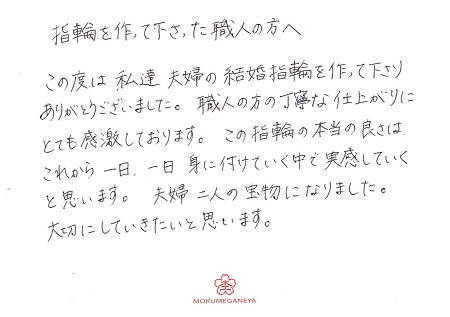 指輪を作って下さった職人の方へ
この度は 私達 夫婦の結婚指輪を作って下さり
ありがとうございました。 職人の方の丁寧な仕上がりに
とても感激しております。 この指輪の本当の良さは、
これから 一日、一日 身に付けていく中で実感していく
と思います。 夫婦 二人の宝物になりました。
大切にしていきたいと思います。
MOKUMEGANEYA